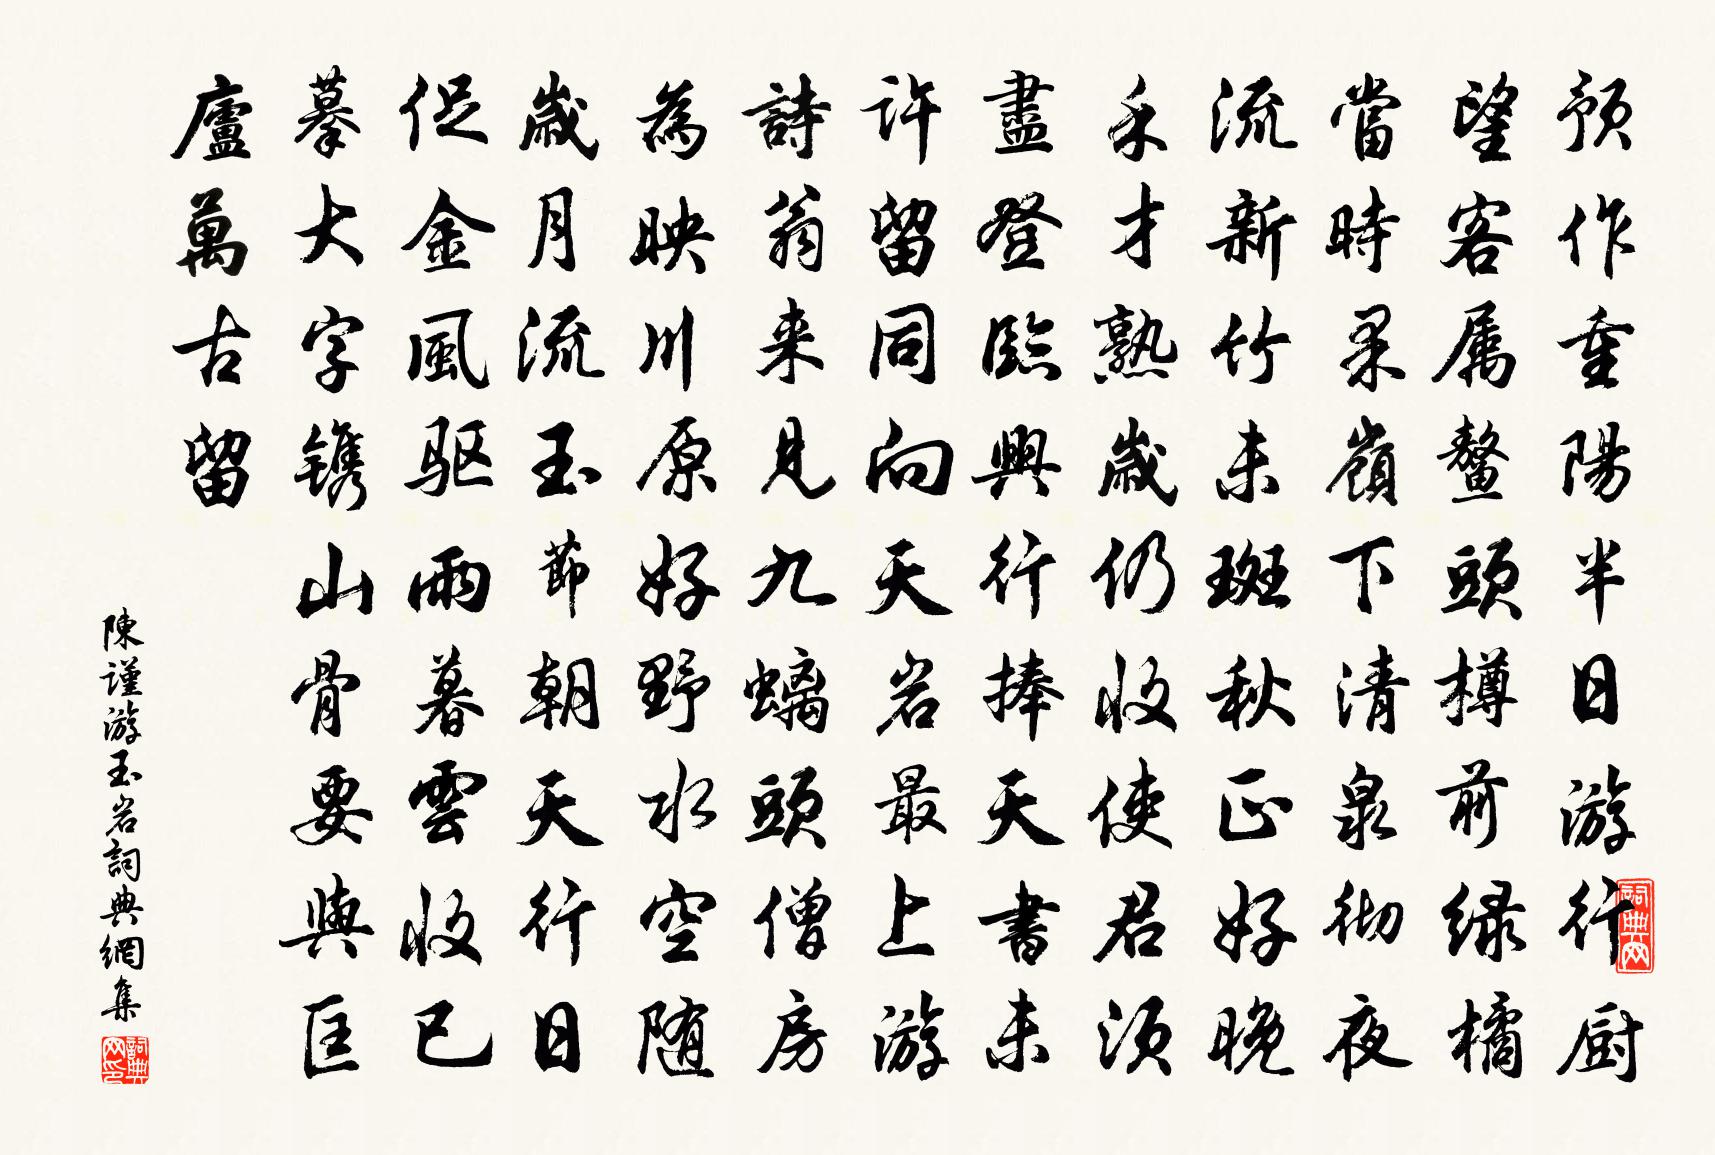 預作重陽半日游行厨
望客属鳌頭樽前緑橘
當時果嶺下清泉彻夜
流新竹未斑秋正好晚
禾才熟歲仍收使君須
盡登臨興行捧天書未
許留同向天岩最上游
詩翁来見九螭頭僧房
為映川原好野水空随
歲月流玉節朝天行日
促金風驱雨暮雲收已
摹大字镌山骨要與匡
廬萬古留
陳谨游玉岩詞典網集
詞典网
詞典网印